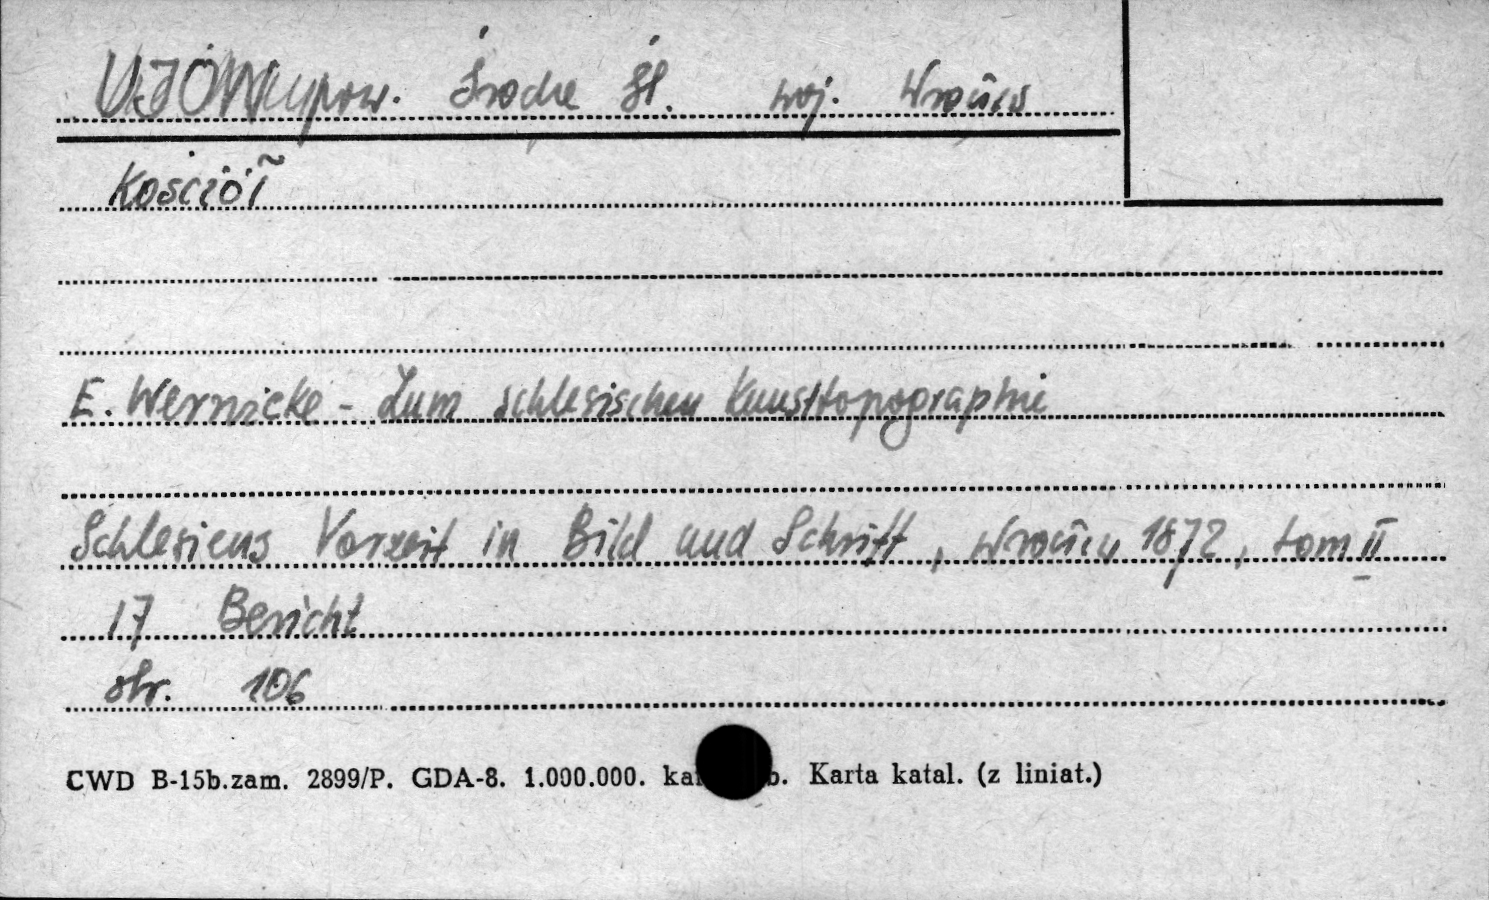 UJÓW pow. Środa Śl. woj. Wrocław
Kościół
E. Wernicke - Zum schlesischen Kunsttopographie
Schlesiens Vorzeit in Bild und Schrift, Wrocław 1872, tom II
17 Bericht
str. 106
CWD B-15b.zam. 2899/P. GDA-8. 1.000.000. Karta katal. (z liniat.)